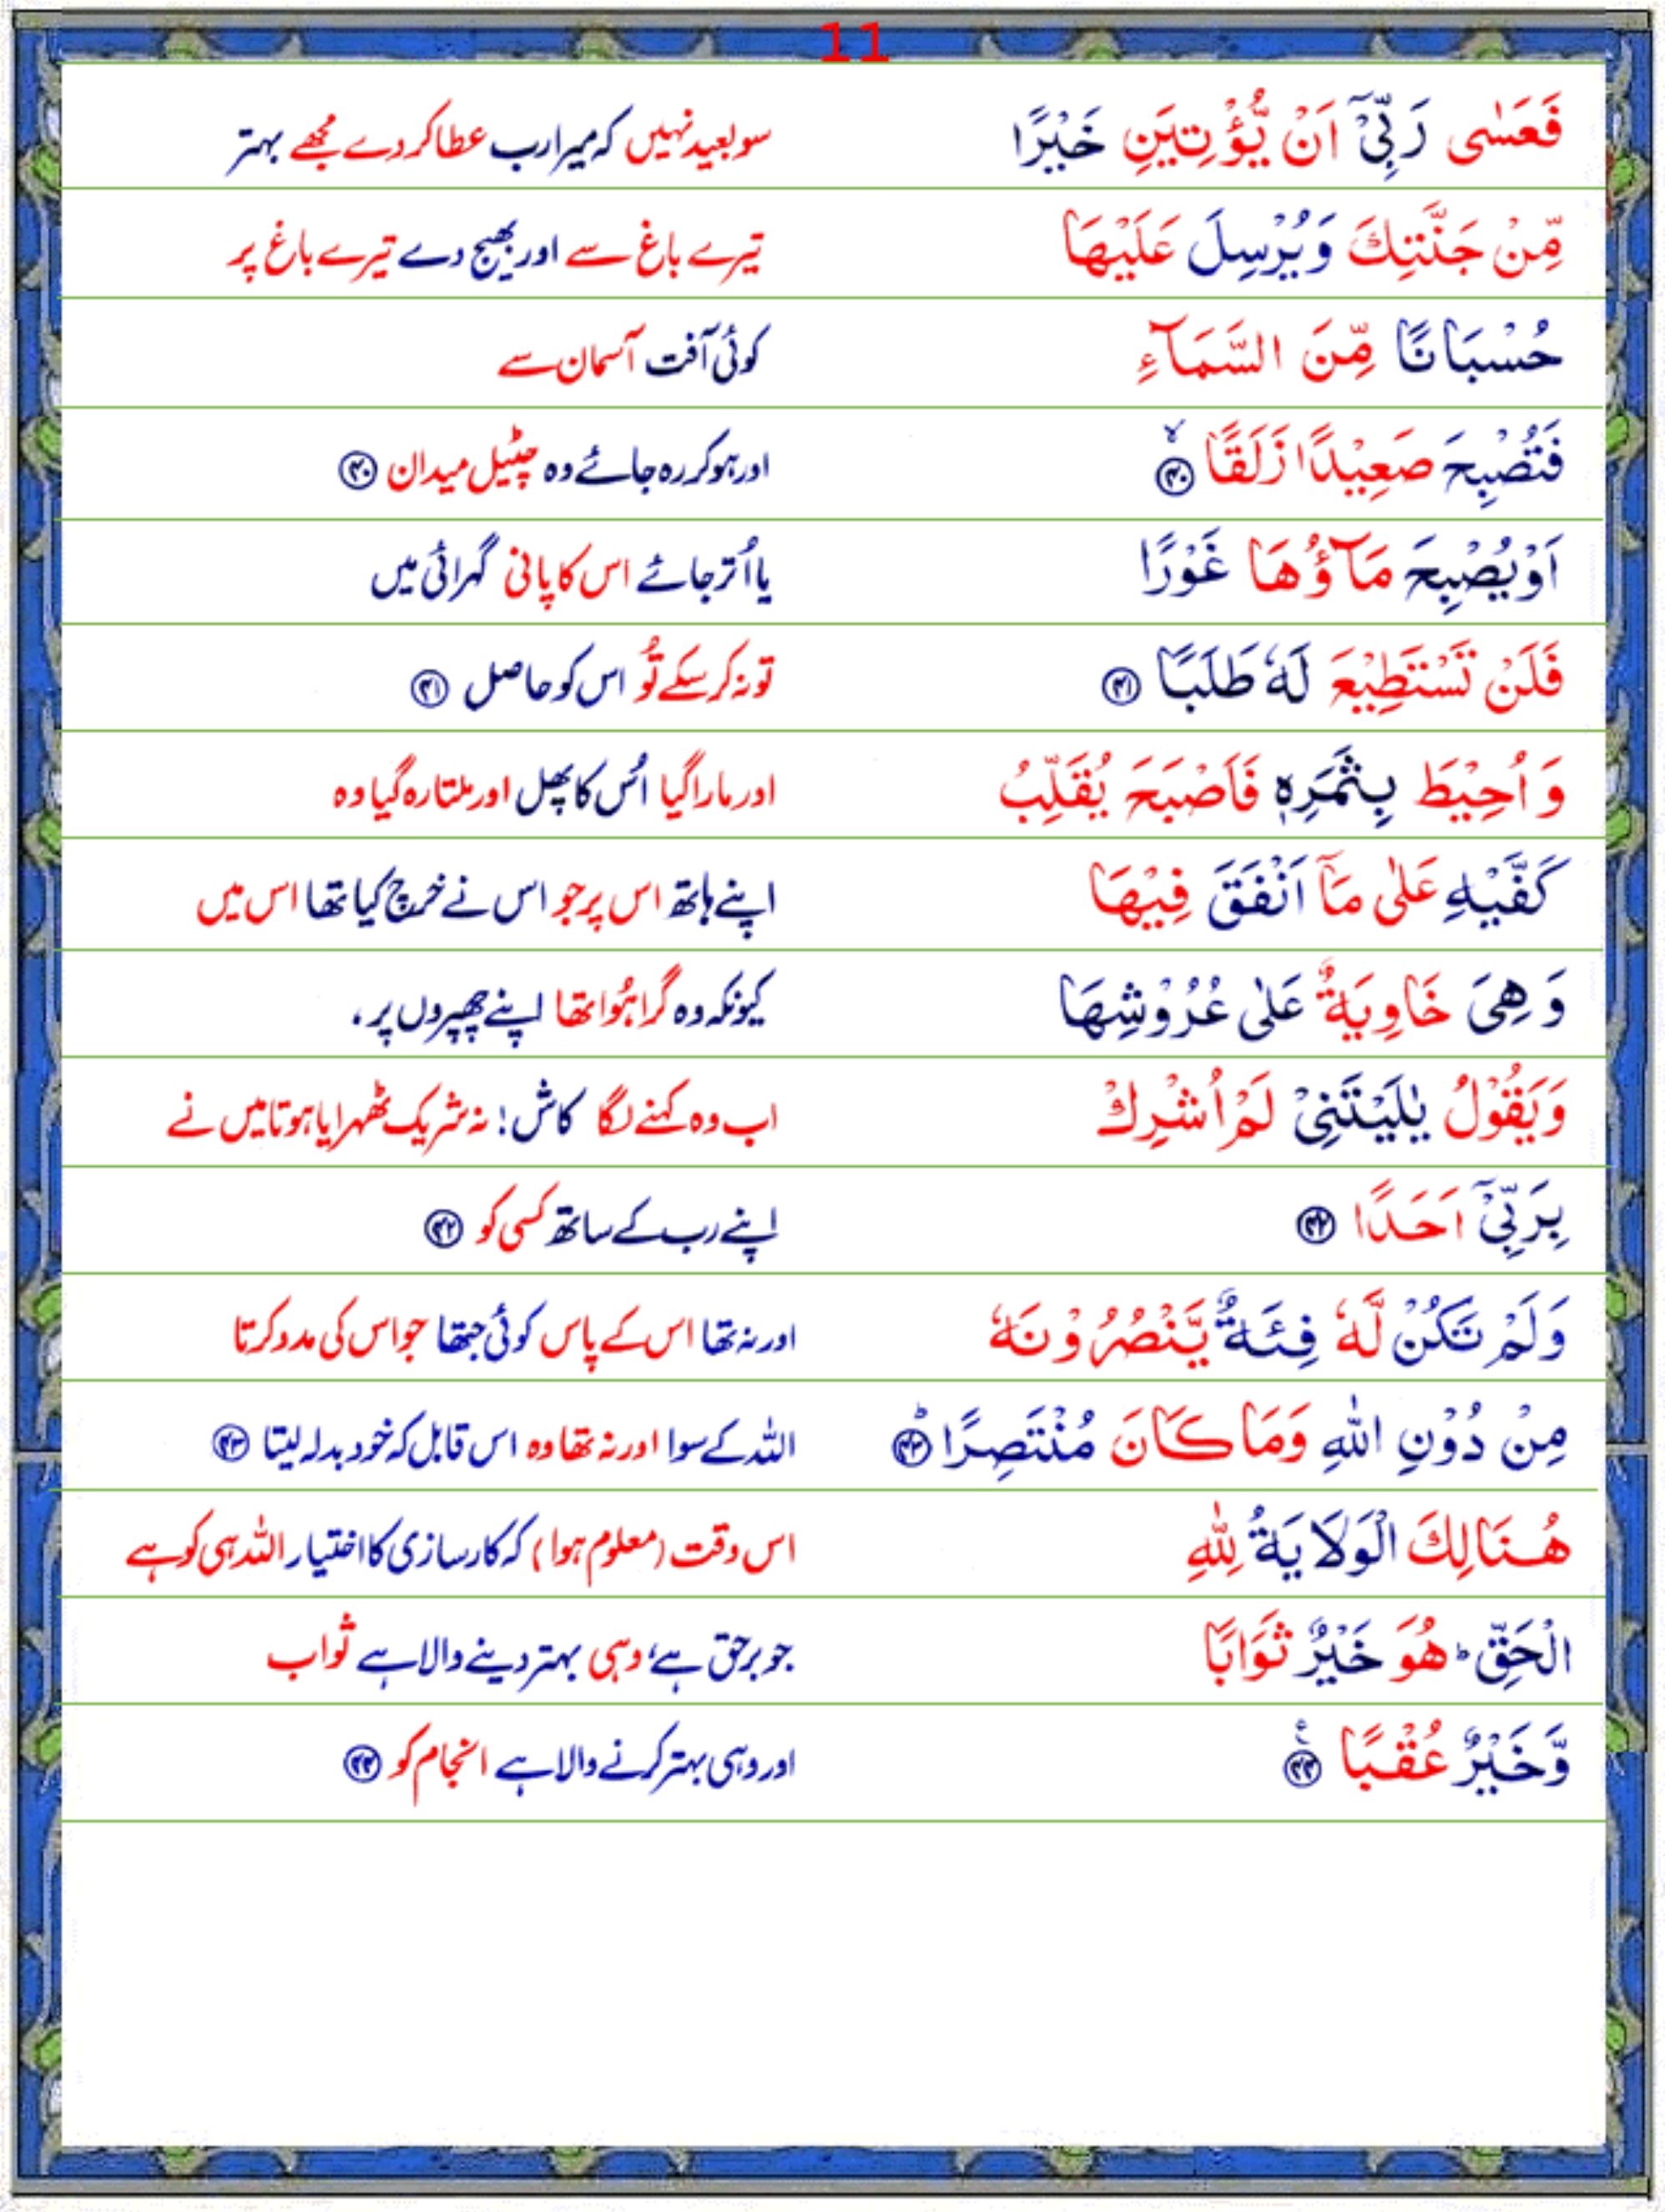 11
فَعَسٰى رَبِّىْٓ اَنْ يُّؤْتِيَنِ خَيْرًا سو بعید نہیں کہ میرا رب عطا کر دے مجھے بہتر
مِّنْ جَنَّتِكَ وَيُرْسِلَ عَلَيْهَا تیرے باغ سے اور بھیج دے تیرے باغ پر
حُسْبَانًا مِّنَ السَّمَآءِ کوئی آفت آسمان سے
فَتُصْبِحَ صَعِيْدًا زَلَقًا ۙ۝۴۰ اور ہو کر رہ جائے وہ چٹیل میدان ۝۴۰
اَوْ يُصْبِحَ مَآؤُهَا غَوْرًا یا اُتر جائے اس کا پانی گہرائی میں
فَلَنْ تَسْتَطِيْعَ لَهٗ طَلَبًا ۝۴۱ تو نہ کر سکے تُو اس کو حاصل ۝۴۱
وَ اُحِيْطَ بِثَمَرِهٖ فَاَصْبَحَ يُقَلِّبُ اور مارا گیا اُس کا پھل اور ملتا رہ گیا وہ
كَفَّيْهِ عَلٰى مَآ اَنْفَقَ فِيْهَا اپنے ہاتھ اس پر جو اس نے خرچ کیا تھا اس میں
وَ هِىَ خَاوِيَةٌ عَلٰى عُرُوْشِهَا کیونکہ وہ گرا ہُوا تھا اپنے چھپروں پر،
وَيَقُوْلُ يٰلَيْتَنِىْ لَمْ اُشْرِكْ اب وہ کہنے لگا کاش! نہ شریک ٹھہرایا ہوتا میں نے
بِرَبِّىْٓ اَحَدًا ۝۴۲ اپنے رب کے ساتھ کسی کو ۝۴۲
وَلَمْ تَكُنْ لَّهٗ فِئَةٌ يَّنْصُرُوْنَهٗ اور نہ تھا اس کے پاس کوئی جتھا جو اس کی مدد کرتا
مِنْ دُوْنِ اللّٰهِ وَمَا كَانَ مُنْتَصِرًا ؕ۝۴۳ اللہ کے سوا اور نہ تھا وہ اس قابل کہ خود بدلہ لیتا ۝۴۳
هُنَالِكَ الْوَلَايَةُ لِلّٰهِ اس وقت (معلوم ہوا) کہ کارسازی کا اختیار اللہ ہی کو ہے
الْحَقِّ ؕ هُوَ خَيْرٌ ثَوَابًا جو برحق ہے، وہی بہتر دینے والا ہے ثواب
وَّخَيْرٌ عُقْبًا ۝۴۴ اور وہی بہتر کرنے والا ہے انجام کو ۝۴۴